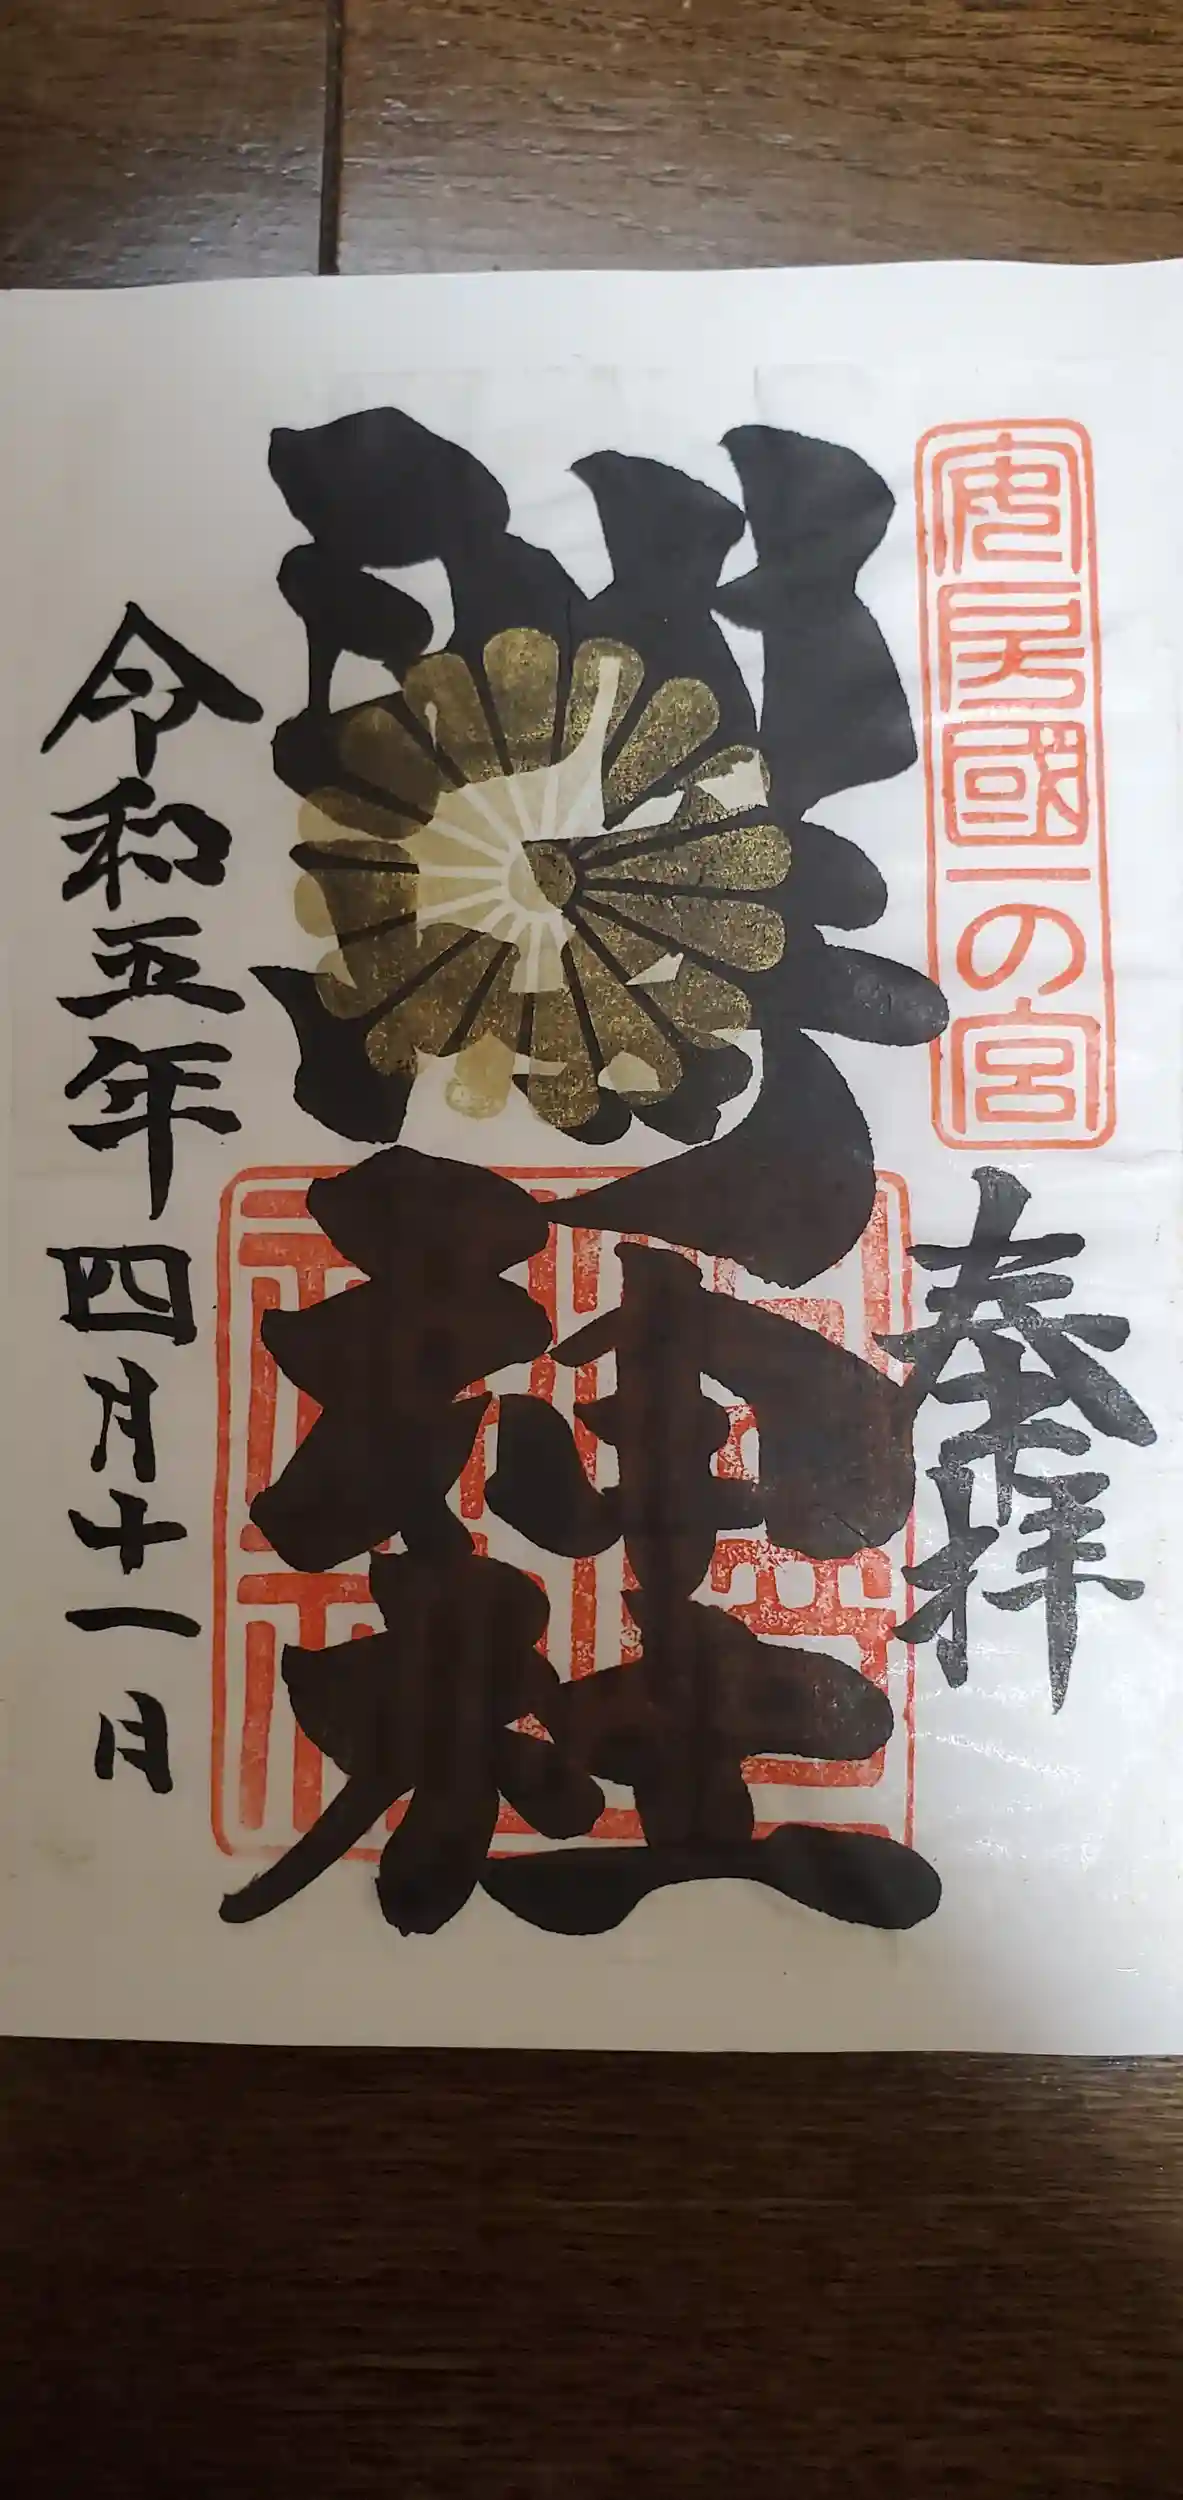 安房國一の宮
奉拝
洲崎神社
令和五年四月十一日